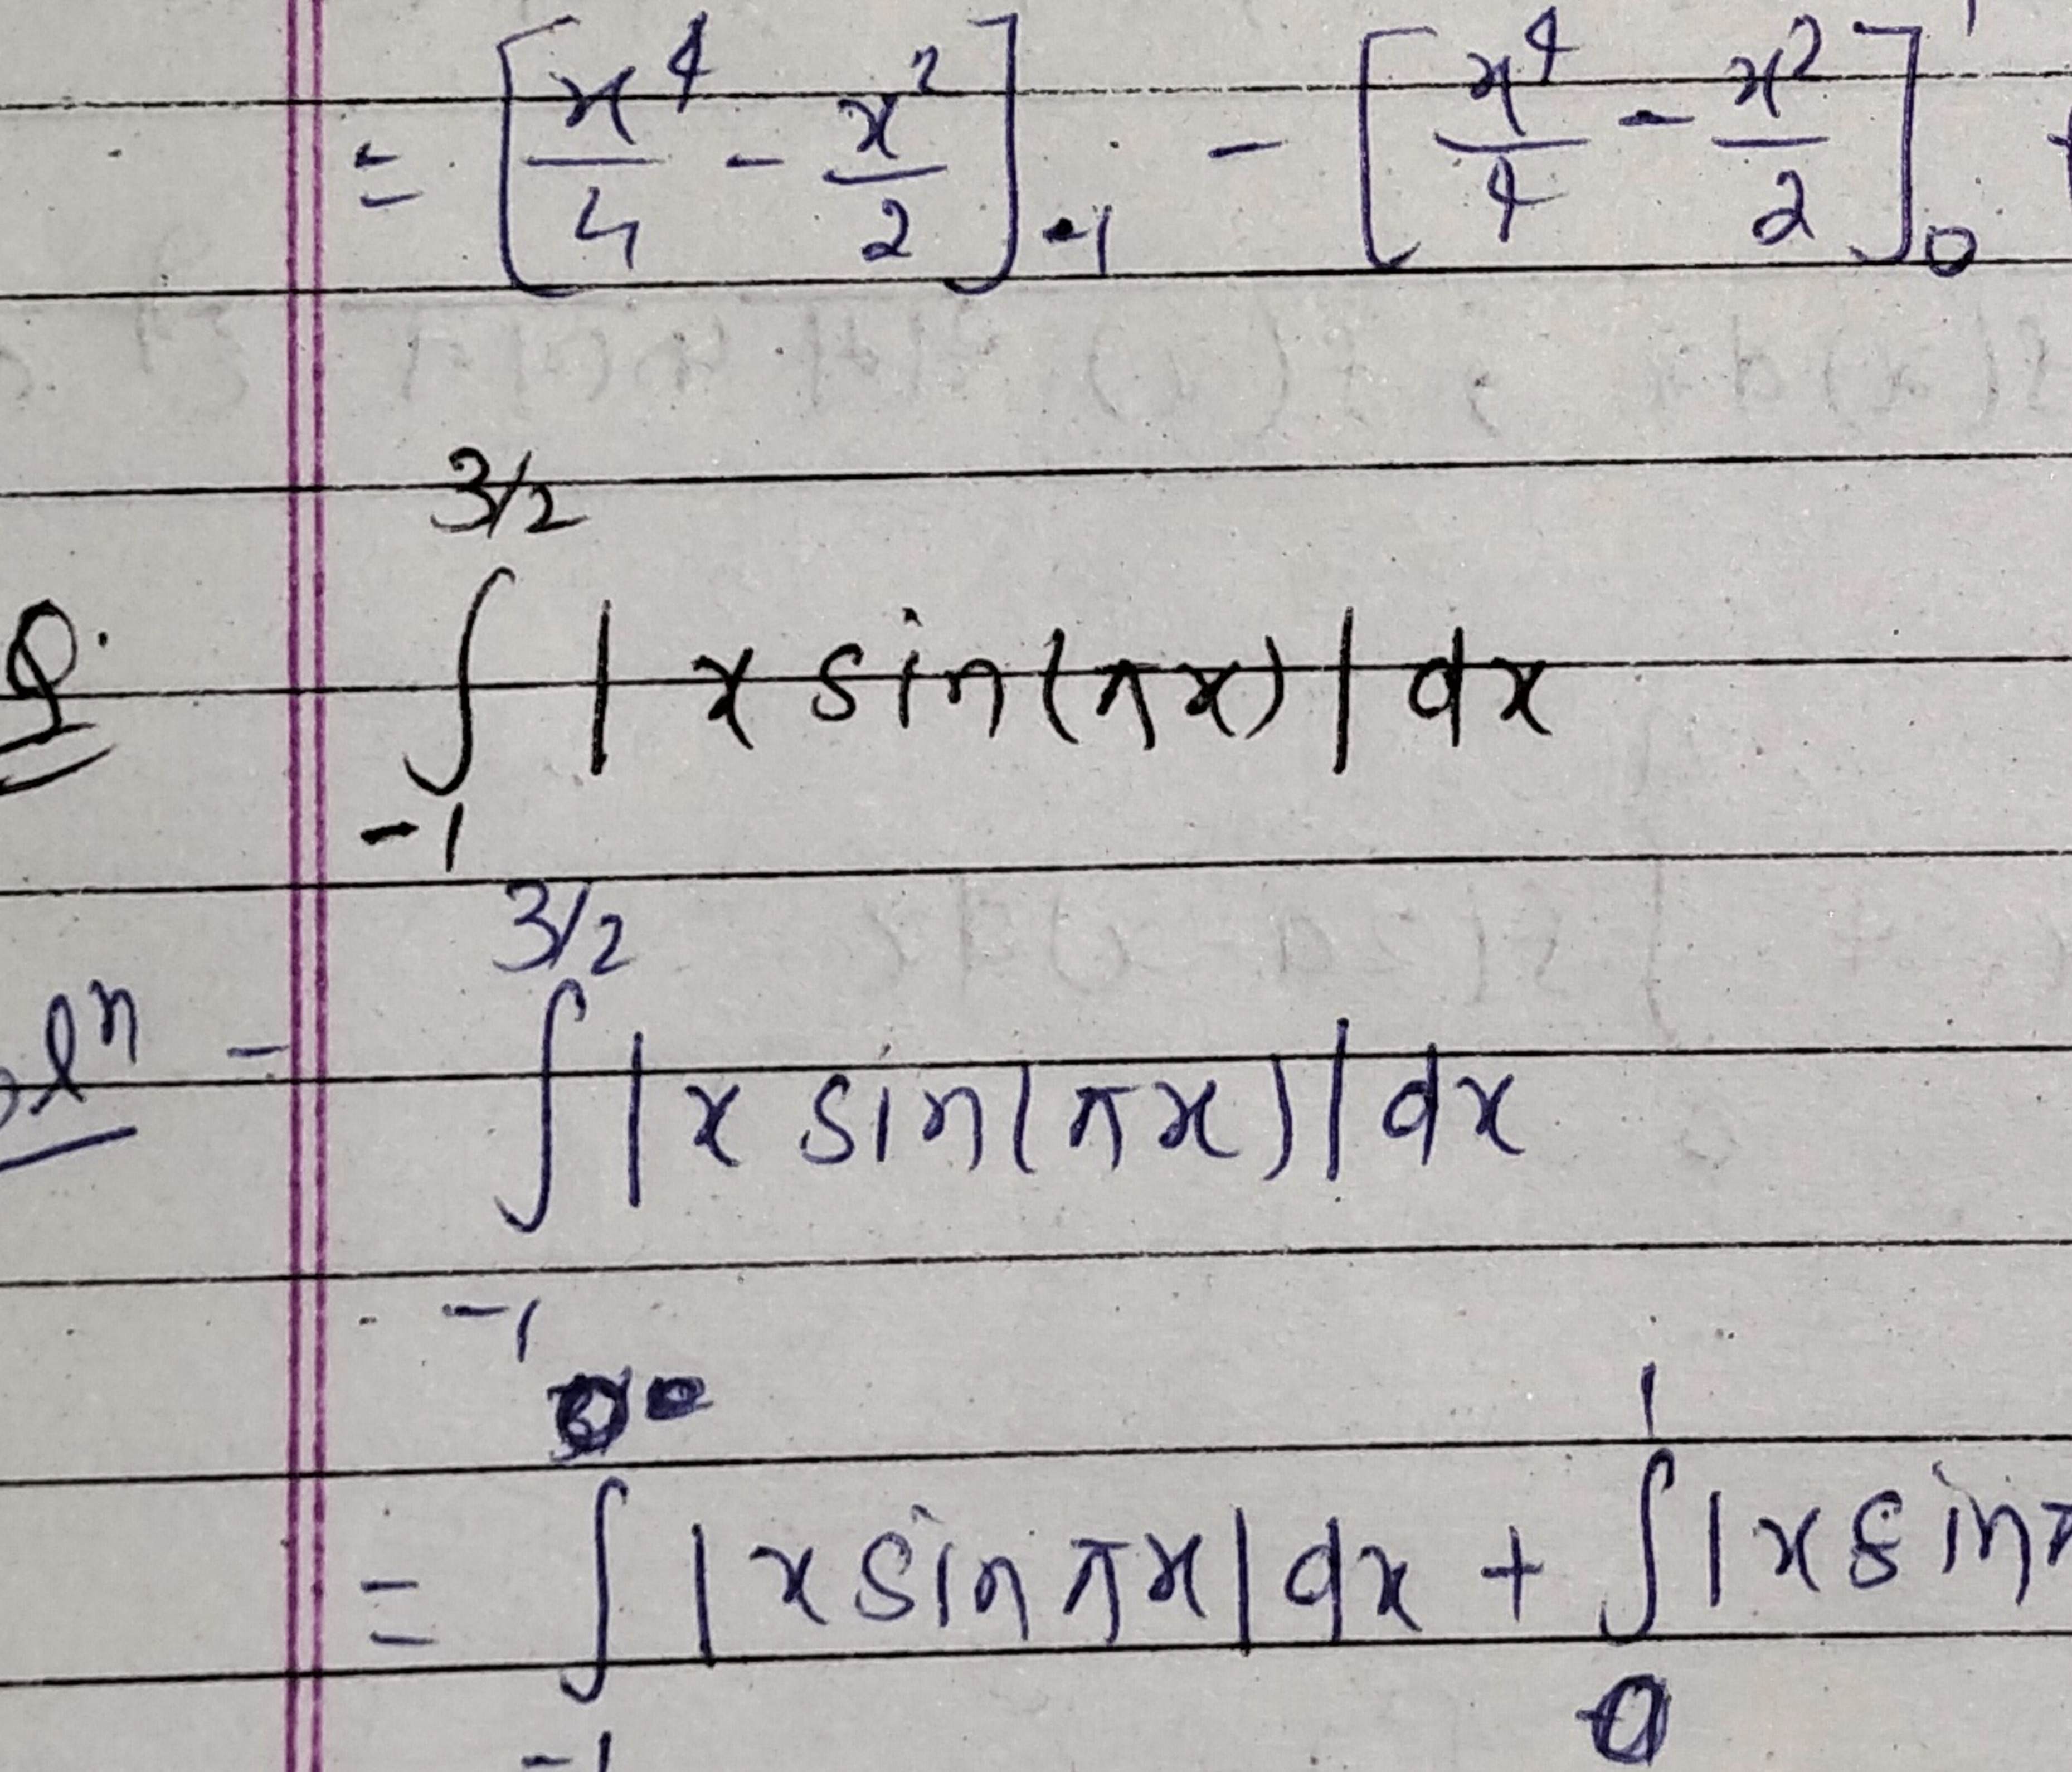 = [x⁴/4 - x²/2]₋₁ - [x⁴/4 - x²/2]₀
Q. ∫₋₁^(3/2) |x sin(πx)| dx
olⁿ - ∫₋₁^(3/2) |x sin(πx)| dx
= ∫₋₁^0 |x sin πx| dx + ∫₀^1 |x sin